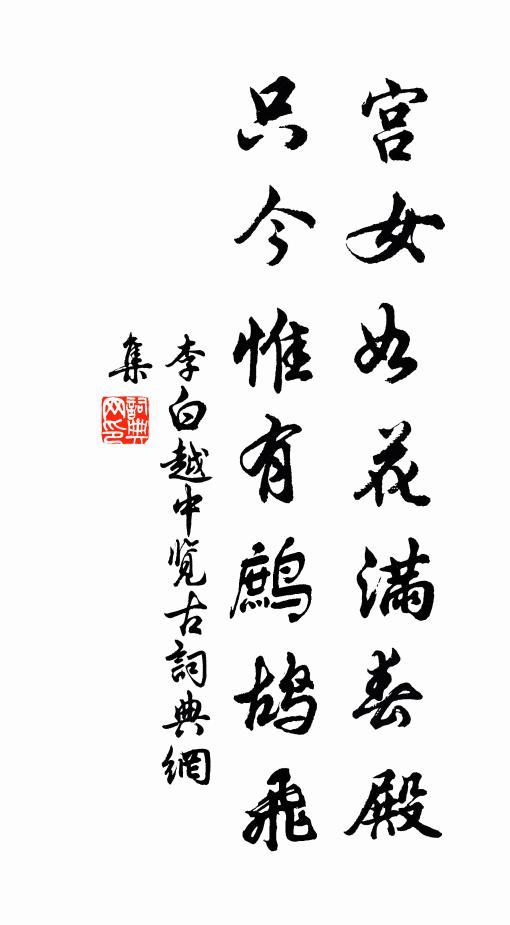 宫女如花满春殿
只今惟有鹧鸪飞
李白越中览古詞典網
集
詞典
网印